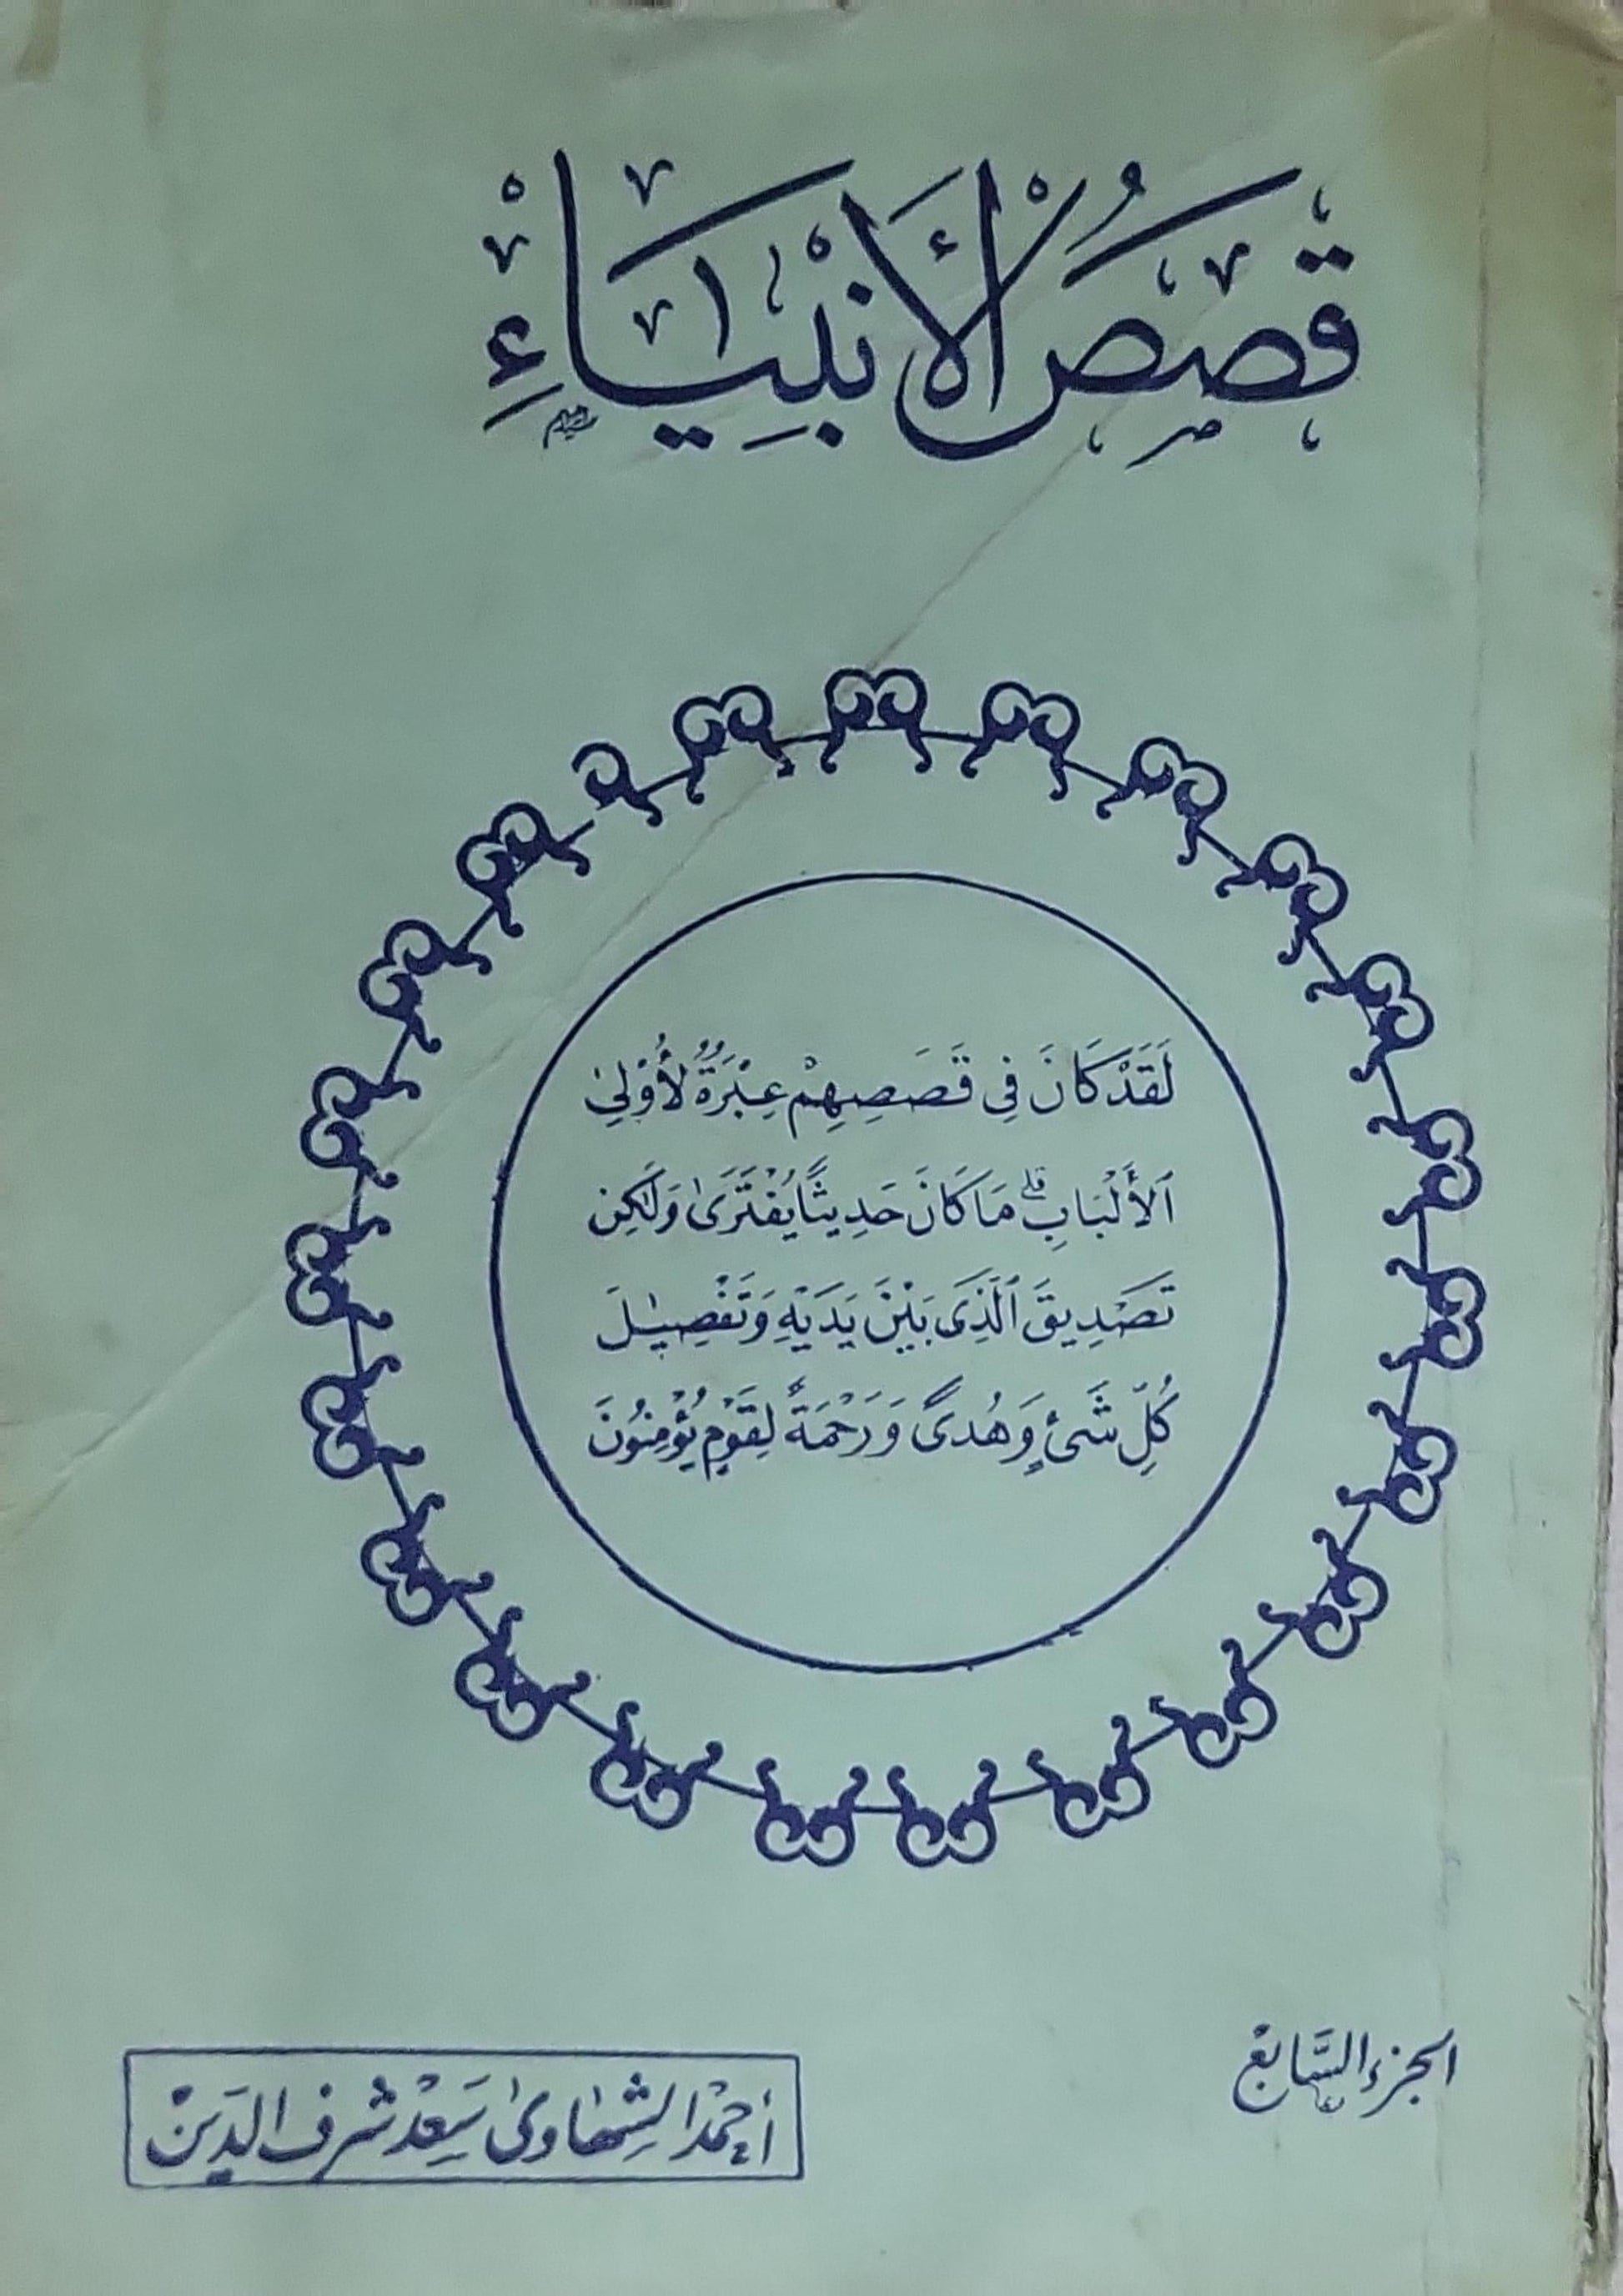 قَصَصُ الْأَنْبِيَاءِ
لَقَدْ كَانَ فِي قَصَصِهِمْ عِبْرَةٌ لِأُوْلِي
ٱلْأَلْبَابِ ۗ مَا كَانَ حَدِيثًا يُفْتَرَىٰ وَلَٰكِن
تَصْدِيقَ ٱلَّذِى بَيْنَ يَدَيْهِ وَتَفْصِيلَ
كُلِّ شَىْءٍ وَهُدًى وَرَحْمَةً لِقَوْمٍ يُؤْمِنُونَ
الجزء السَّابع
أحمد الشهاوى سَعْد شرف الدين